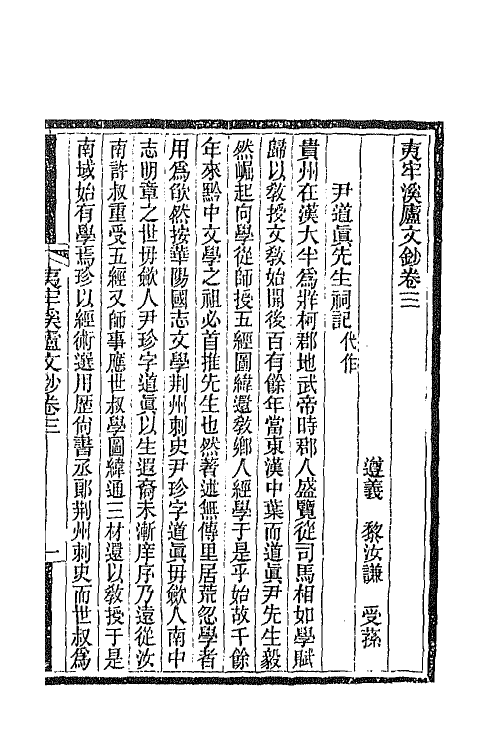 夷牢溪廬文鈔卷三
遵義　黎汝謙　受蓀
尹道眞先生祠記代作
貴州在漢大半爲牂柯郡地武帝時郡人盛覽從司馬相如學賦
歸以敎授文敎始開後百有餘年當東漢中葉而道眞尹先生毅
然崛起向學從師授五經圖緯還敎鄉人經學于是乎始故千餘
年來黔中文學之祖必首推先生也然著述無傳里居荒忽學者
用爲欿然按華陽國志文學荆州刺史尹珍字道眞毋斂人南中
志明章之世毋斂人尹珍字道眞以生遐裔未漸庠序乃遠從汝
南許叔重受五經又師事應世叔學圖緯通三材還以敎授于是
南域始有學焉珍以經術選用歷尙書丞郞荆州刺史而世叔爲
夷牢溪廬文鈔卷三
一